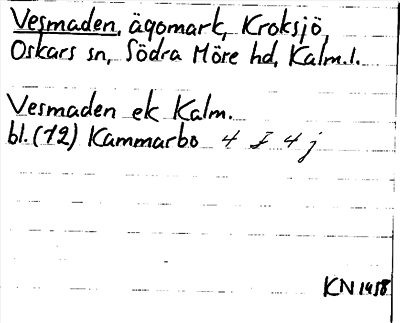 Vesmaden, ägomark, Kroksjö,
Oskars sn, Södra Möre hd, Kalm.l.
Vesmaden ek Kalm.
bl. (12) Kammarbo 4 I 4 j
KN 1958